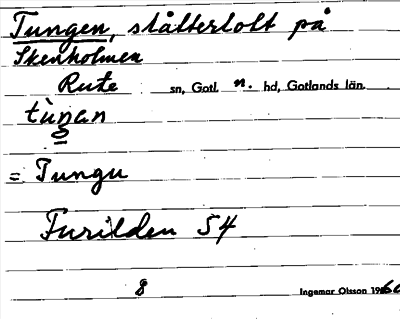 Tungen, slåtterlott på
Skenholmen
Rute sn, Gotl. n. hd, Gotlands län.
tùŋan
= Tungu
Furilden S4
8 Ingemar Olsson 1960